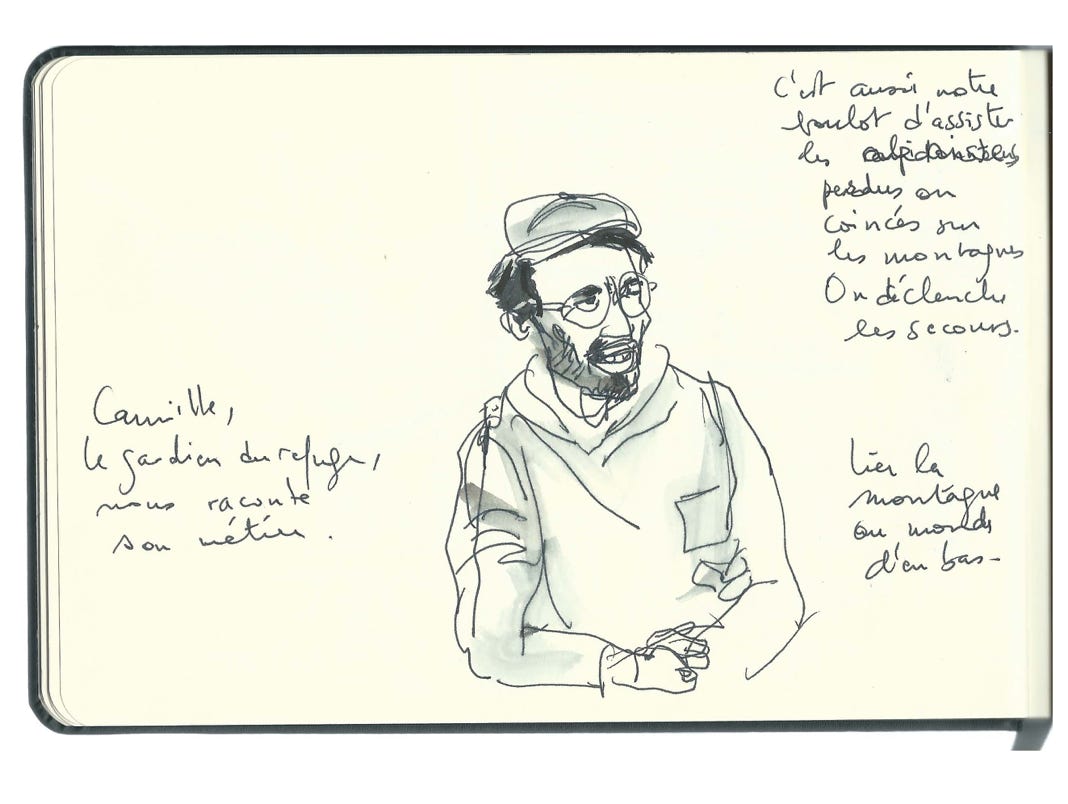 Camille,
le gardien du refuge,
nous raconte
son métier.
C'est aussi notre
boulot d'assister
les alpinistes
perdus ou
coincés sur
les montagnes
On déclenche
les secours.
Lier la
montagne
au monde
d'en bas-